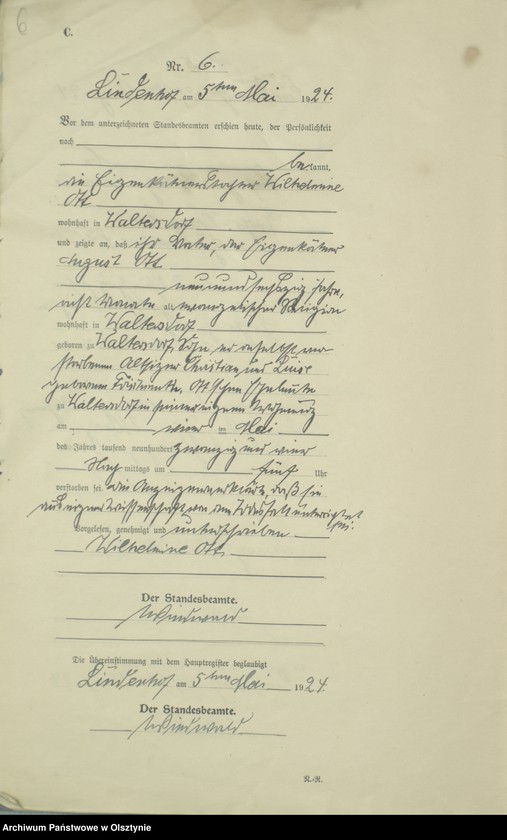 6
C.
Nr. 6.
Lindenhof am 5ten Mai 1924.
Vor dem unterzeichneten Standesbeamten erschien heute, der Persönlichkeit
nach
bekannt,
die Eigenkätnerstochter Wilhelmine
Ott
wohnhaft in Waltersdorf
und zeigte an, daß ihr Vater, der Eigenkätner
August Ott
neunundsechzig Jahre,
acht Monate alt evangelischer Religion
wohnhaft in Waltersdorf
geboren zu Waltersdorf Sohn der daselbst ver-
storbenen Altsitzer Christian und Luise
geborenen Ott'schen Eheleute
zu Waltersdorf in seiner eigenen Wohnung
am vier ten Mai
des Jahres tausend neunhundert zwanzig und vier
Nach mittags um fünf Uhr
verstorben sei. Die Anzeigende erklärte, daß sie
aus eigner Wissenschaft von dem Todesfall unterrichtet
sei.
Vorgelesen, genehmigt und unterschrieben
Wilhelmine Ott
Der Standesbeamte.
Die Übereinstimmung mit dem Hauptregister beglaubigt
Lindenhof am 5ten Mai 1924.
Der Standesbeamte.
N.-R.
Archiwum Państwowe w Olsztynie